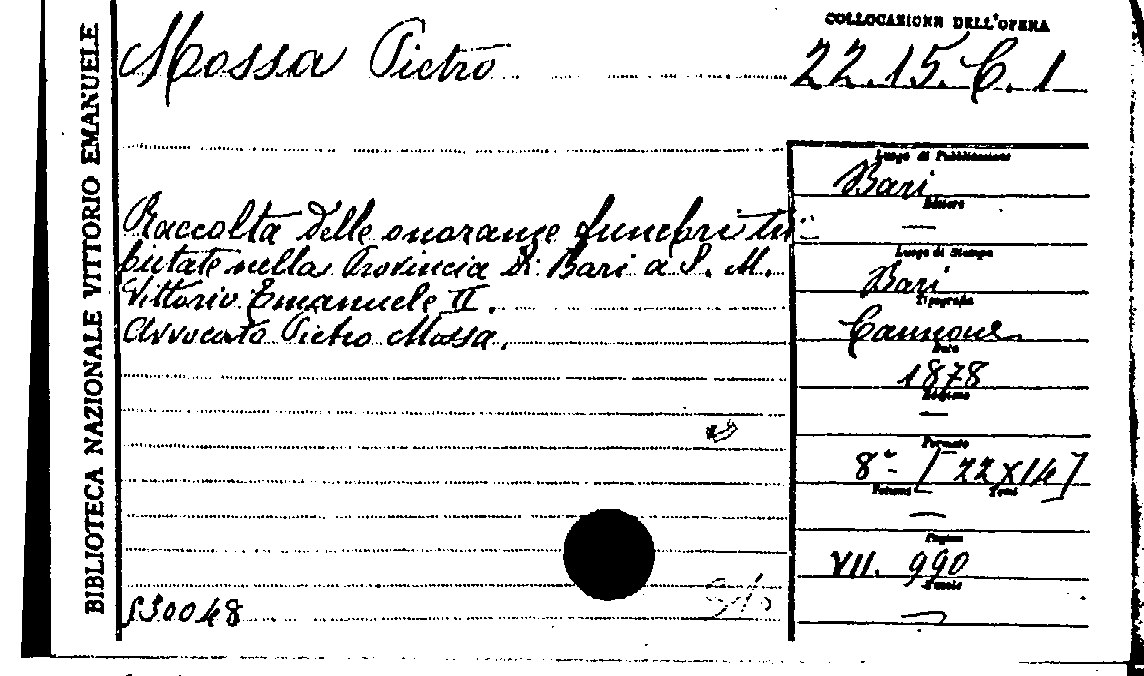 BIBLIOTECA NAZIONALE VITTORIO EMANUELE
Mossa Pietro
COLLOCAZIONE DELL'OPERA
22.15.C.1
Raccolta delle onoranze funebri tri=
butate nella Provincia di Bari a S. M.
Vittorio Emanuele II.
Avvocato Pietro Mossa.
530048
Luogo di Pubblicazione
Bari
Editore
—
Luogo di Stampa
Bari
Tipografia
Cannone
Data
1878
Edizione
—
Formato
8º- [22x14]
Volumi Tomi
—
Pagine
VII. 990
Tavole
—